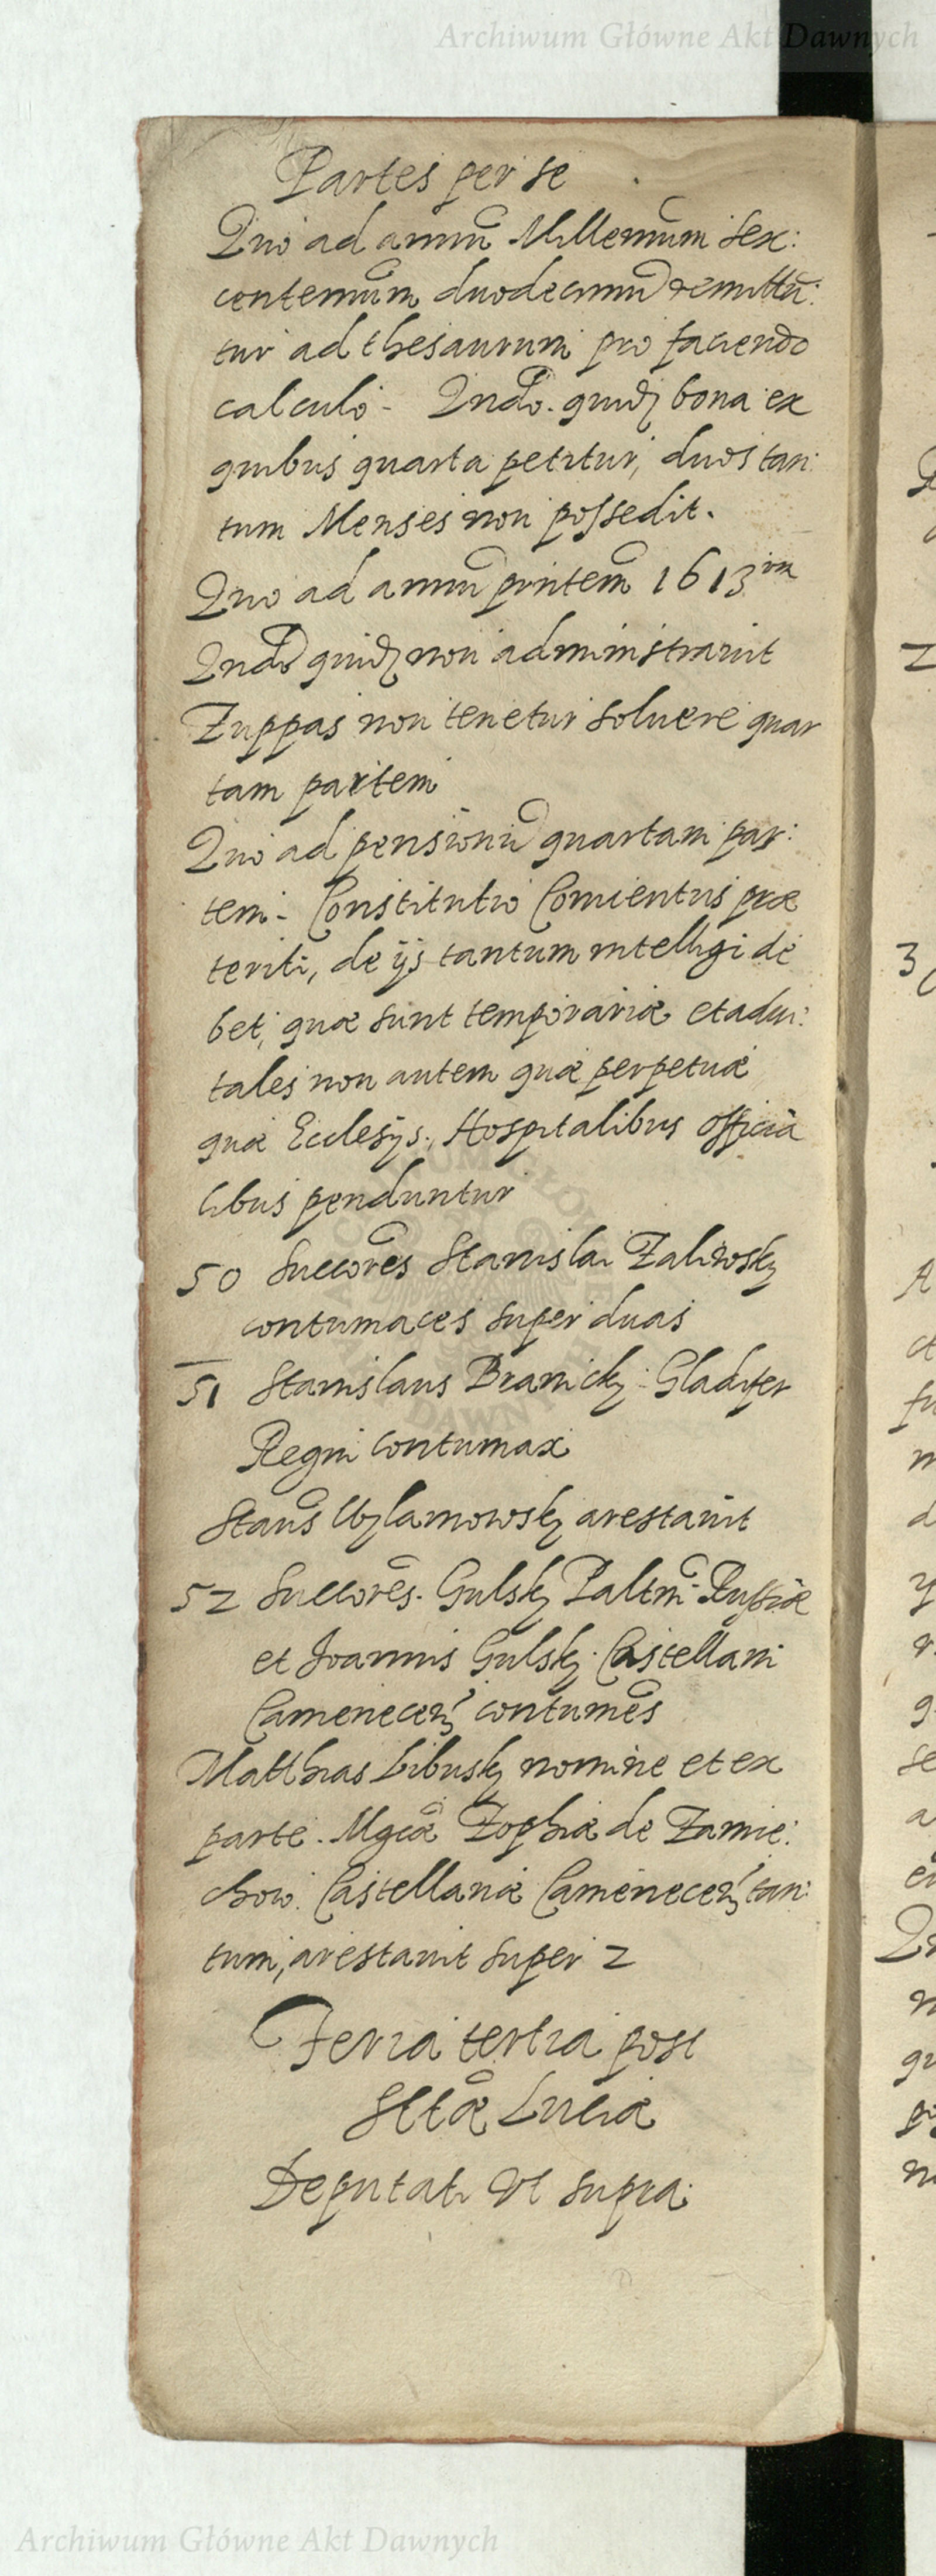 Archiwum Główne Akt Dawnych
Partes per se
Quo ad annũ Millesimũm Sex:
centesimũm duodecimũ remittũ:
tur ad thesaurum pro faciendo
calculo - Quãdo. quidẽ bona ex
quibus quarta petitur, duos tan:
tum Menses non possedit.
Quo ad annũ pñtem 1613 
Quãdo quidẽ non administrauit
Zuppas non tenetur soluere quar
tam partem
Quo ad pensionũ quartam par:
tem - Constitutio Conuentus præ
teriti, de ijs tantum intelligi de
bet, quæ sunt temporariæ et adui:
tales non autem quæ perpetuæ
quæ Ecclesijs, Hospitalibus officia
libus penduntur
50 Succores Stanislai Zaliwsky
contumaces super duas
51 Stanislaus Branicky Gladifer
Regni contumax
Stanũs arestauit
52 Succores. Gulsky Paltni Russiæ
et Joannis Gulsky Castellani
Camenecen contumes
Matthias Libusky nomine et ex
parte. Mgcæ Zophiæ de Zamie:
chow. Castellanæ Camenecen tan:
tum, arestauit super 2
Feria tertia post
Sctæ Luciæ
Deputati Vt supra
Archiwum Główne Akt Dawnych